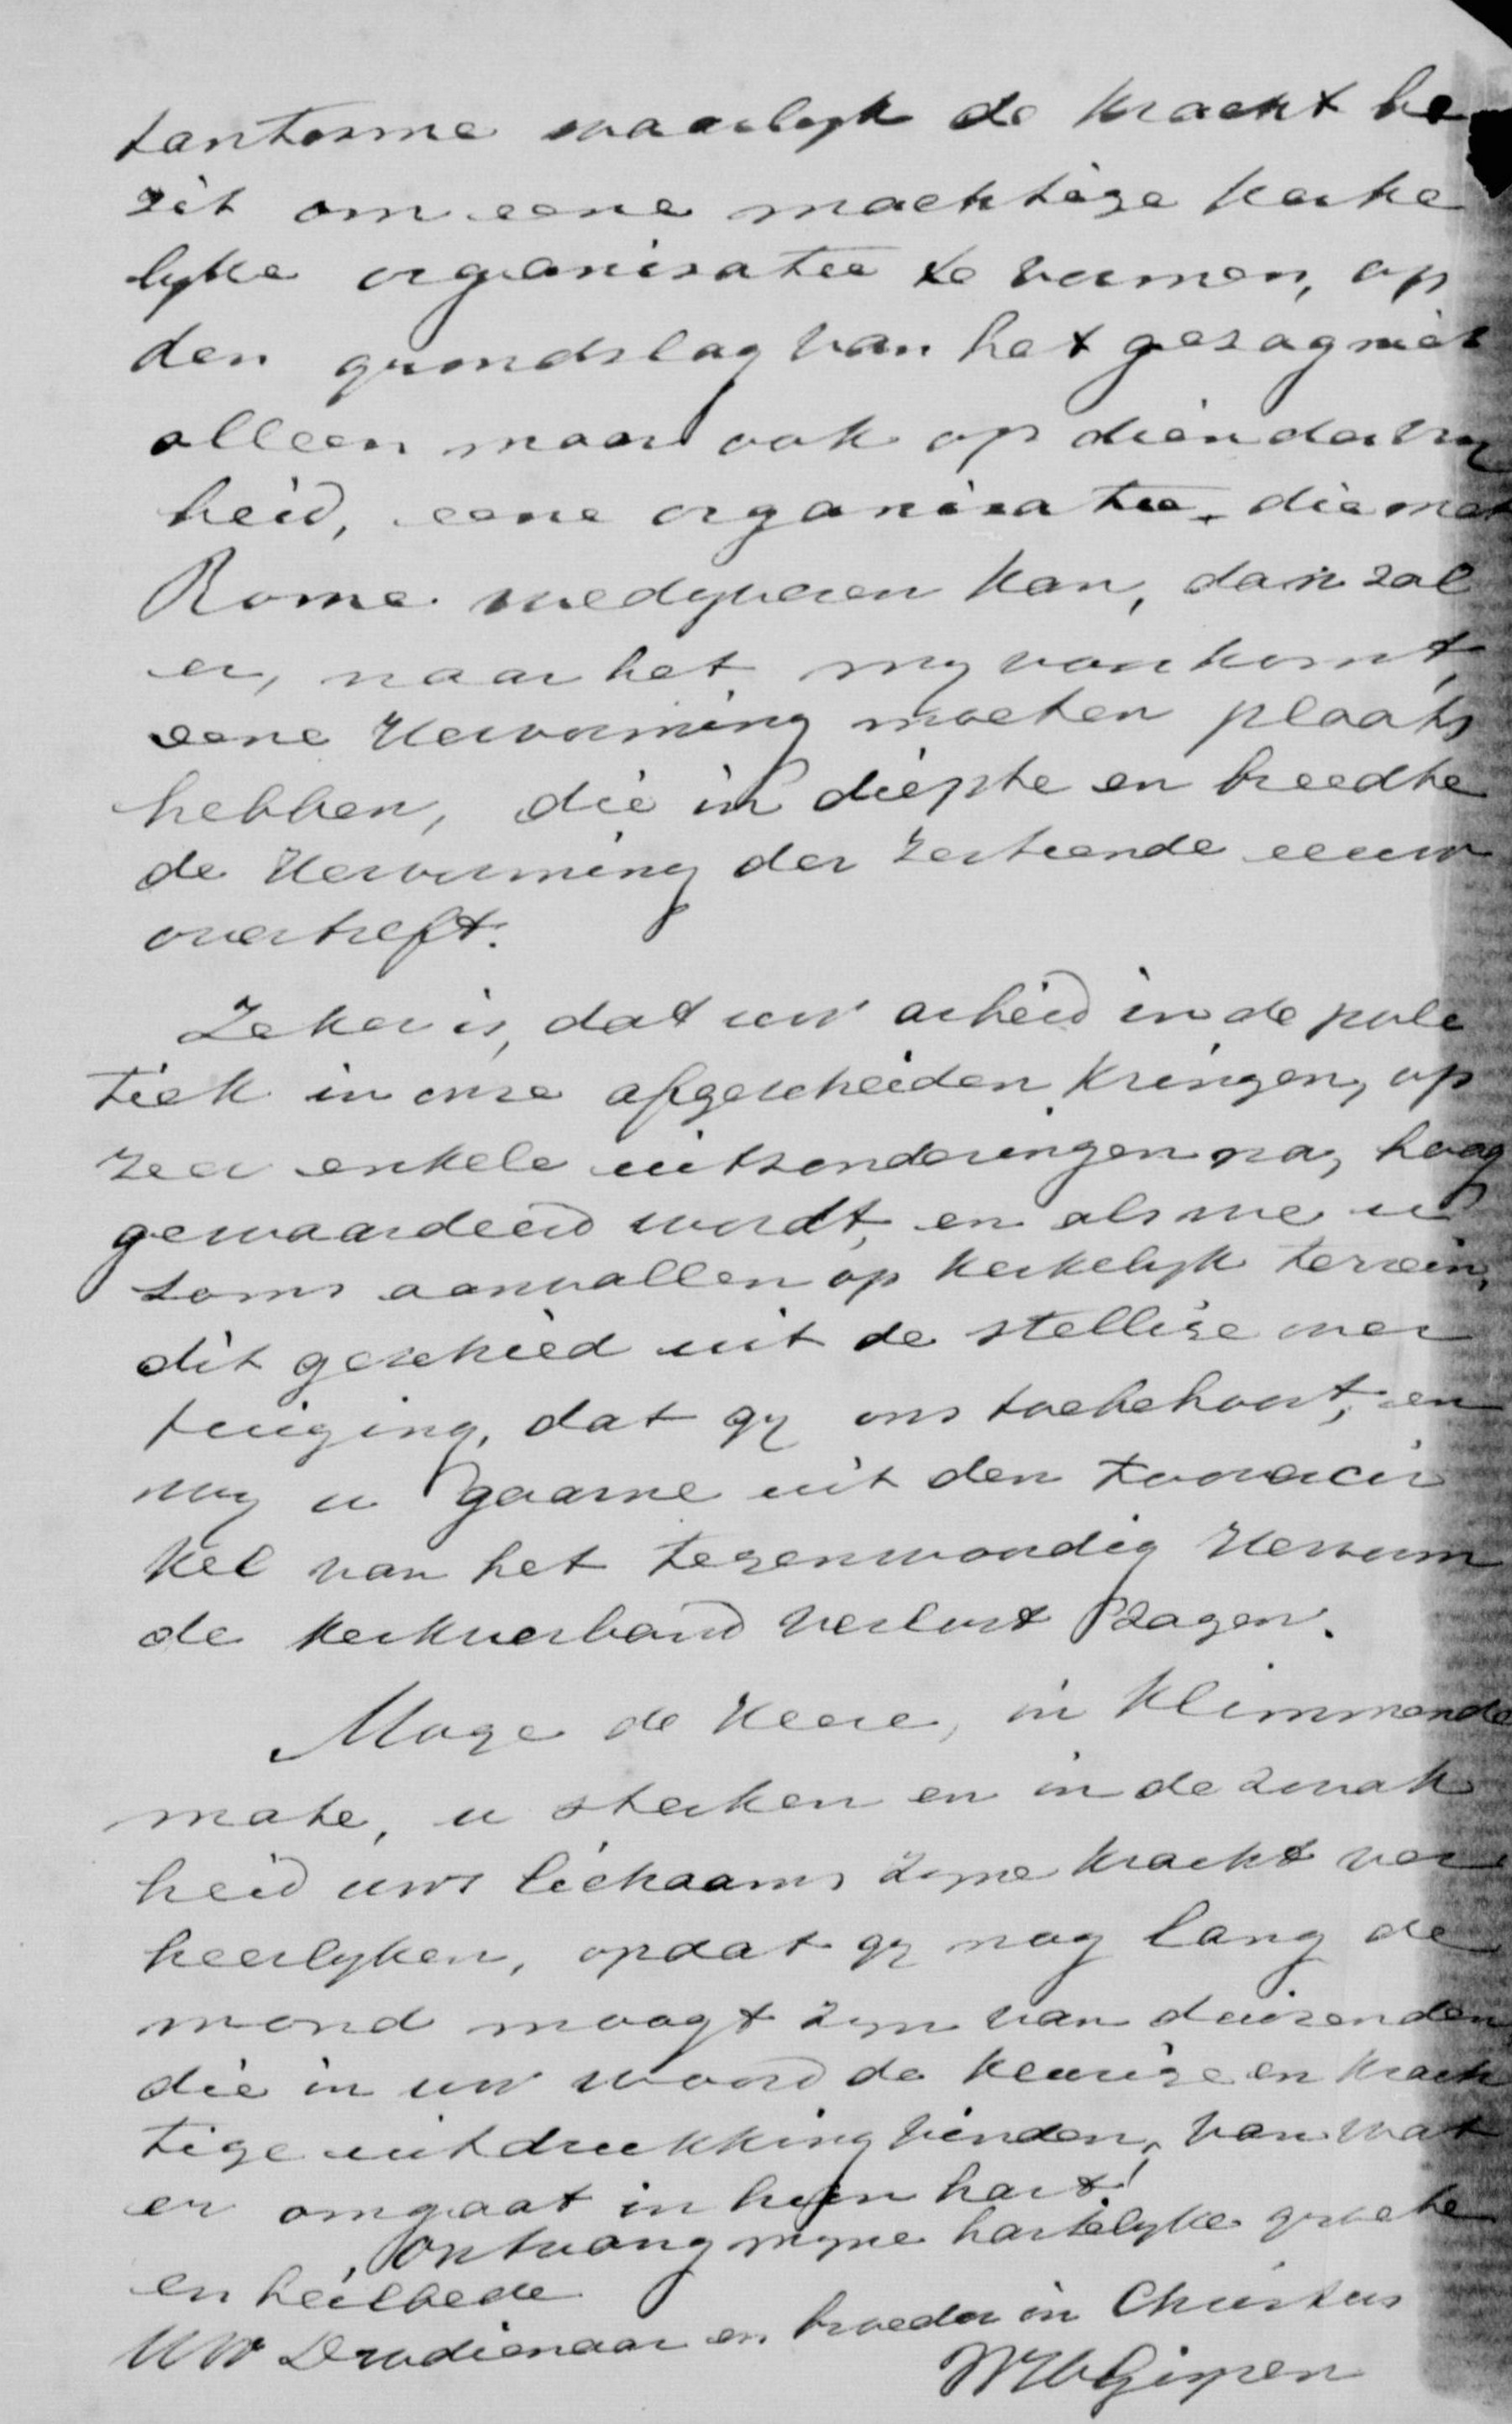 tantisme waarlyk de kracht be
zit om eene machtige kerke
lyke organisatie te vormen, op
den grondslag van het gezag niet
alleen maar ook op dien der vry
heid, eene organisatie, die met
Rome wedyveren kan, dan zal
er, naar het my voorkomt,
eene Hervorming moeten plaats
hebben, die in diepte en breedte
de Hervorming der zestiende eeuw
overtreft.
Zeker is, dat uw arbeid in de poli
tiek in onze afgescheiden kringen, op
zeer enkele uitzonderingen na, hoog
gewaardeerd wordt, en als we u
soms aanvallen op kerkelyk terrein,
dit geschied uit de stellige over
tuiging, dat gy ons toebehoort, en
wy u gaarne uit den toovercir
kel van het tegenwoordig Hervorm
de kerkverband verlost zagen.
Moge de Heere, in klimmende
mate, u sterken en in de zwak
heid uws lichaams zyne kracht ver
heerlyken, opdat gy nog lang de
mond moogt zyn van duizenden
die in uw woord de keurige en krach
tige uitdrukking vinden, van wat
er omgaat in hun hart!
Ontvang myne hartelyke groete
en heilbede
UW Dw dienaar en broeder in Christus
WHGispen